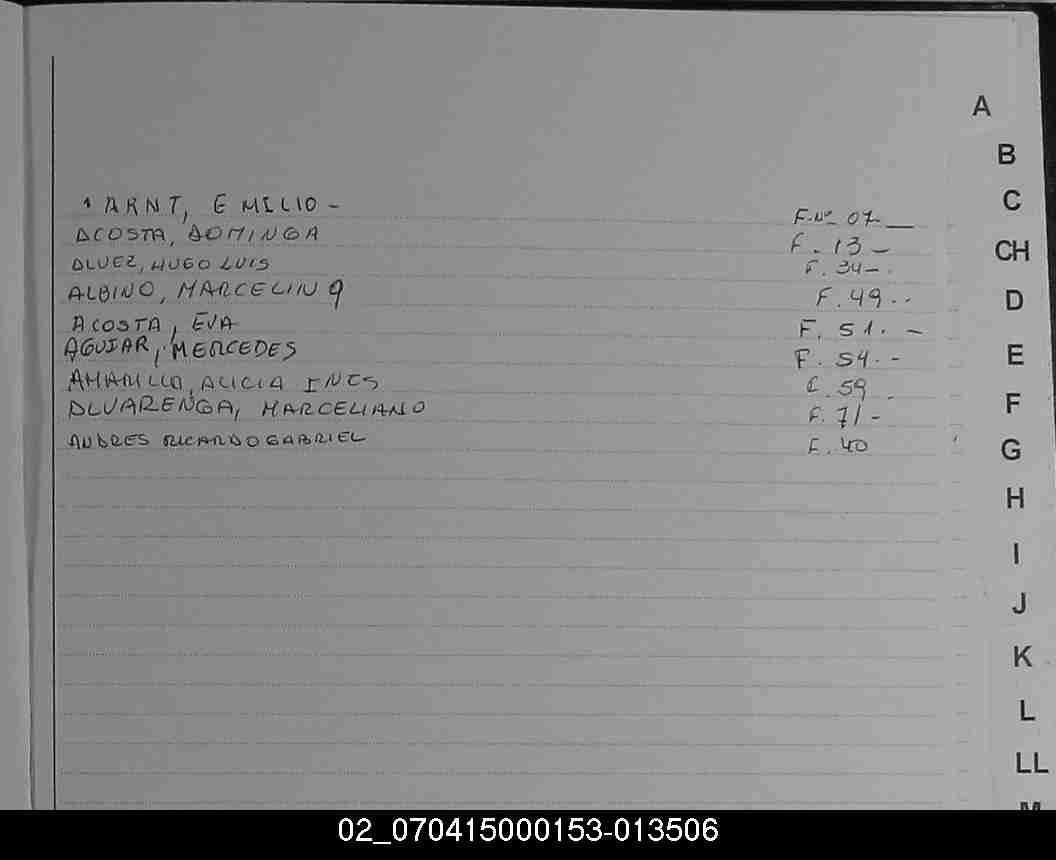 ARNT, EMILIO - F. Nº 07
ACOSTA, DOMINGA F. 13 -
ALVEZ, HUGO LUIS F. 34 -
ALBINO, MARCELINO F. 49 --
ACOSTA, EVA F. 51. -
AGUIAR, MERCEDES F. 54. -
AMARILLO, ALICIA INES F. 59
ALVARENGA, MARCELIANO F. 71 -
ANDRES RICARDO GABRIEL F. 40
A
B
C
CH
D
E
F
G
H
I
J
K
L
LL
M
02_070415000153-013506